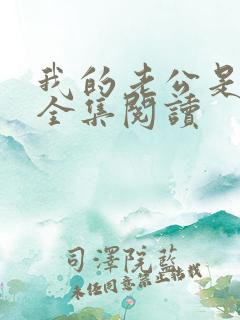 我的老公是
全集閱讀
司澤院藍
未经同意禁止转载